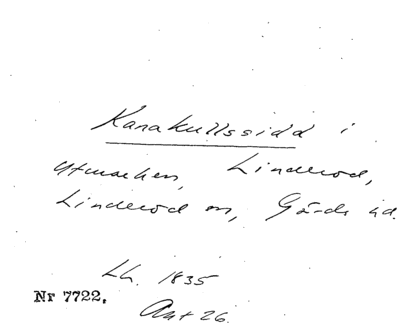 Kanakullssidd i
utmarken, Linderöd,
Linderöd sn, Gärds hd.
Lh. 1835
Nr 7722.
Akt 26.